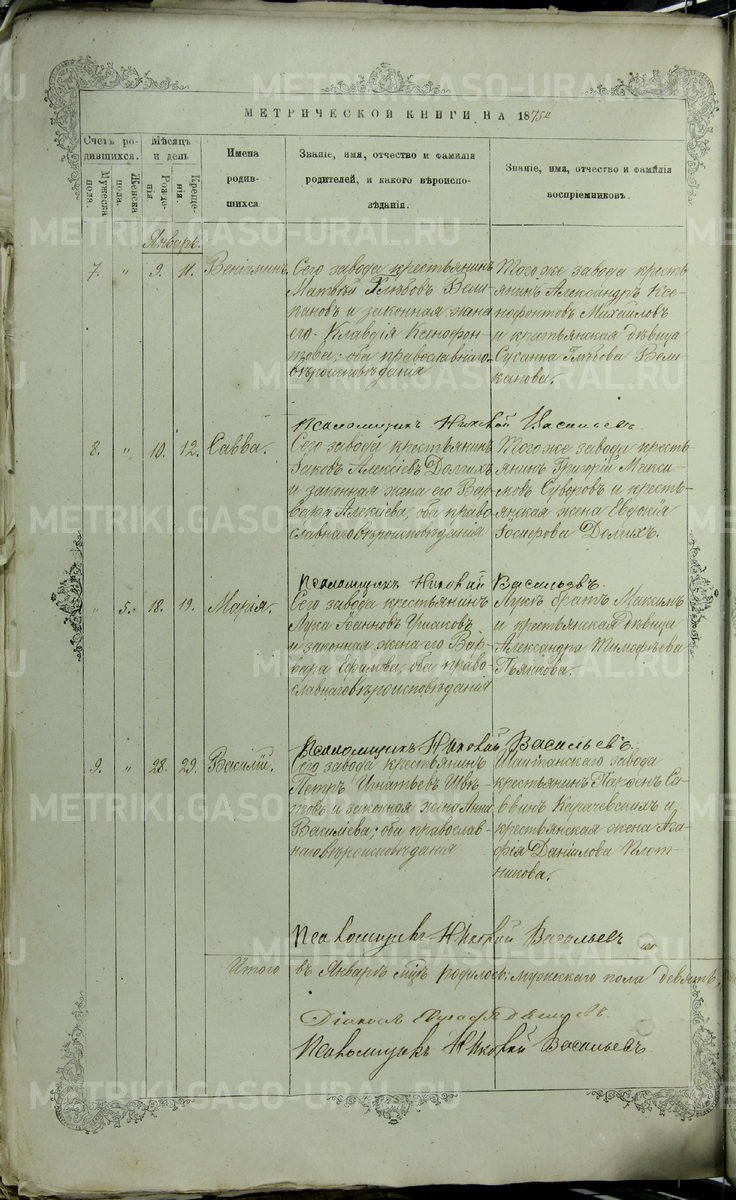 МЕТРИЧЕСКОЙ КНИГИ НА 1875й
Счетъ родившихся.
Мужеска пола.
Женска пола.
Мѣсяцъ и день
Рожденія.
Крещенія.
Имена родившихся.
Званіе, имя, отчество и фамилія родителей, и какого вѣроисповѣданія.
Званіе, имя, отчество и фамилія воспріемниковъ.
Январь.
7. " 9. 11. Веніаминъ.
Сего завода крестьянинъ
Матвѣй Глѣбовъ Вели
кановъ и законная жена
его Клавдія Ксенофон-
това; оба православнаго
вѣроисповѣданія
Того же завода кресть
янинъ Александръ Ксе-
нефонтовъ Михайловъ
и крестьянская дѣвица
Сусанна Глѣбова Вели
канова.
Псаломщикъ Николай Васильевъ
8. " 10. 12. Савва.
Сего завода крестьянинъ
Іаковъ Алексіевъ Долгихъ
и законная жена его Вар
вара Алексіева; оба право
славнаго вѣроисповѣданія
Того же завода кресть
янинъ Григорій Макси-
мовъ Суворовъ и кресть-
янская жена Евдокія
Іосифова Долгихъ.
Псаломщикъ Николай Васильевъ.
" 5. 18. 19. Марія.
Сего завода крестьянинъ
Лука Іоанновъ
и законная жена его Вар-
вара Ефимова; оба право-
славнаго вѣроисповѣданія
Луки братъ Максимъ
и крестьянская дѣвица
Александра Тимофѣева
Пьянкова.
Псаломщикъ Николай Васильевъ.
9. " 28. 29. Василій.
Сего завода крестьянинъ
Петръ Игнатьевъ Швѣ-
цовъ и законная жена Анна
Васильева; оба православ-
наго вѣроисповѣданія
Шайтанскаго завода
крестьянинъ Парфенъ Са-
ввинъ Карачевскихъ и
крестьянская жена Ага-
фія Даніилова Плот-
никова.
Псаломщикъ Николай Васильевъ
Итого въ Январѣ мцѣ родилось: мужескаго пола девять,
Діаконъ
Псаломщикъ Николай Васильевъ.
METRIKI.GASO-URAL.RU